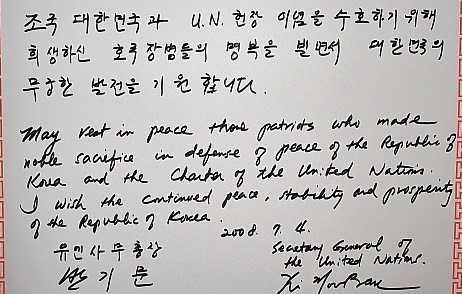 조국 대한민국과 U.N. 헌장 이념을 수호하기 위해
희생하신 호국 장병들의 명복을 빌면서 대한민국의
무궁한 발전을 기원합니다.
May rest in peace those patriots who made
noble sacrifice in defense of peace of the Republic of
Korea and the Charter of the United Nations.
I wish the continued peace, stability and prosperity
of the Republic of Korea.
2008. 7. 4.
유엔사무총장
Secretary General of
the United Nations.
반기문
Ki Moon Ban